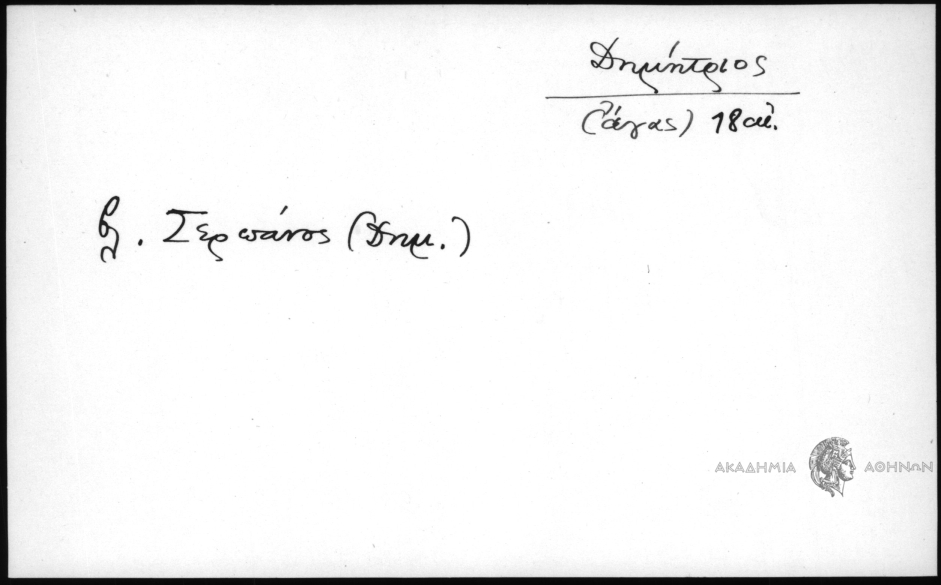 Δημήτριος
(Ζάγας) 18 αἰ.
βλ. Σερπάνος (Δημ.)
ΑΚΑΔΗΜΙΑ ΑΘΗΝΩΝ